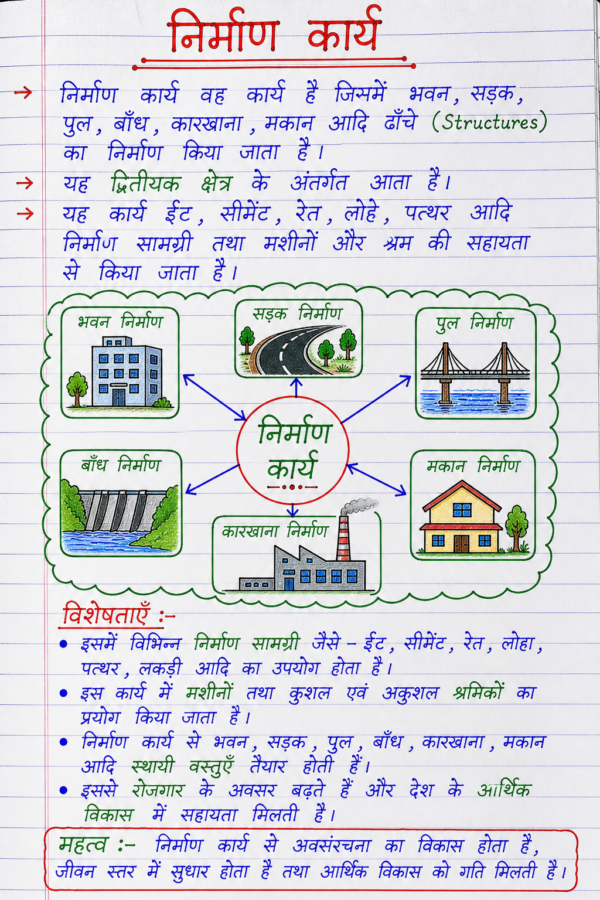 निर्माण कार्य
→ निर्माण कार्य वह कार्य है जिसमें भवन, सड़क,
पुल, बाँध, कारखाना, मकान आदि ढाँचे (Structures)
का निर्माण किया जाता है।
→ यह द्वितीयक क्षेत्र के अंतर्गत आता है।
→ यह कार्य ईट, सीमेंट, रेत, लोहे, पत्थर आदि
निर्माण सामग्री तथा मशीनों और श्रम की सहायता
से किया जाता है।
भवन निर्माण
सड़क निर्माण
पुल निर्माण
निर्माण
कार्य
बाँध निर्माण
मकान निर्माण
कारखाना निर्माण
विशेषताएँ :-
• इसमें विभिन्न निर्माण सामग्री जैसे - ईट, सीमेंट, रेत, लोहा,
पत्थर, लकड़ी आदि का उपयोग होता है।
• इस कार्य में मशीनों तथा कुशल एवं अकुशल श्रमिकों का
प्रयोग किया जाता है।
• निर्माण कार्य से भवन, सड़क, पुल, बाँध, कारखाना, मकान
आदि स्थायी वस्तुएँ तैयार होती हैं।
• इससे रोजगार के अवसर बढ़ते हैं और देश के आर्थिक
विकास में सहायता मिलती है।
महत्व :- निर्माण कार्य से अवसंरचना का विकास होता है,
जीवन स्तर में सुधार होता है तथा आर्थिक विकास को गति मिलती है।